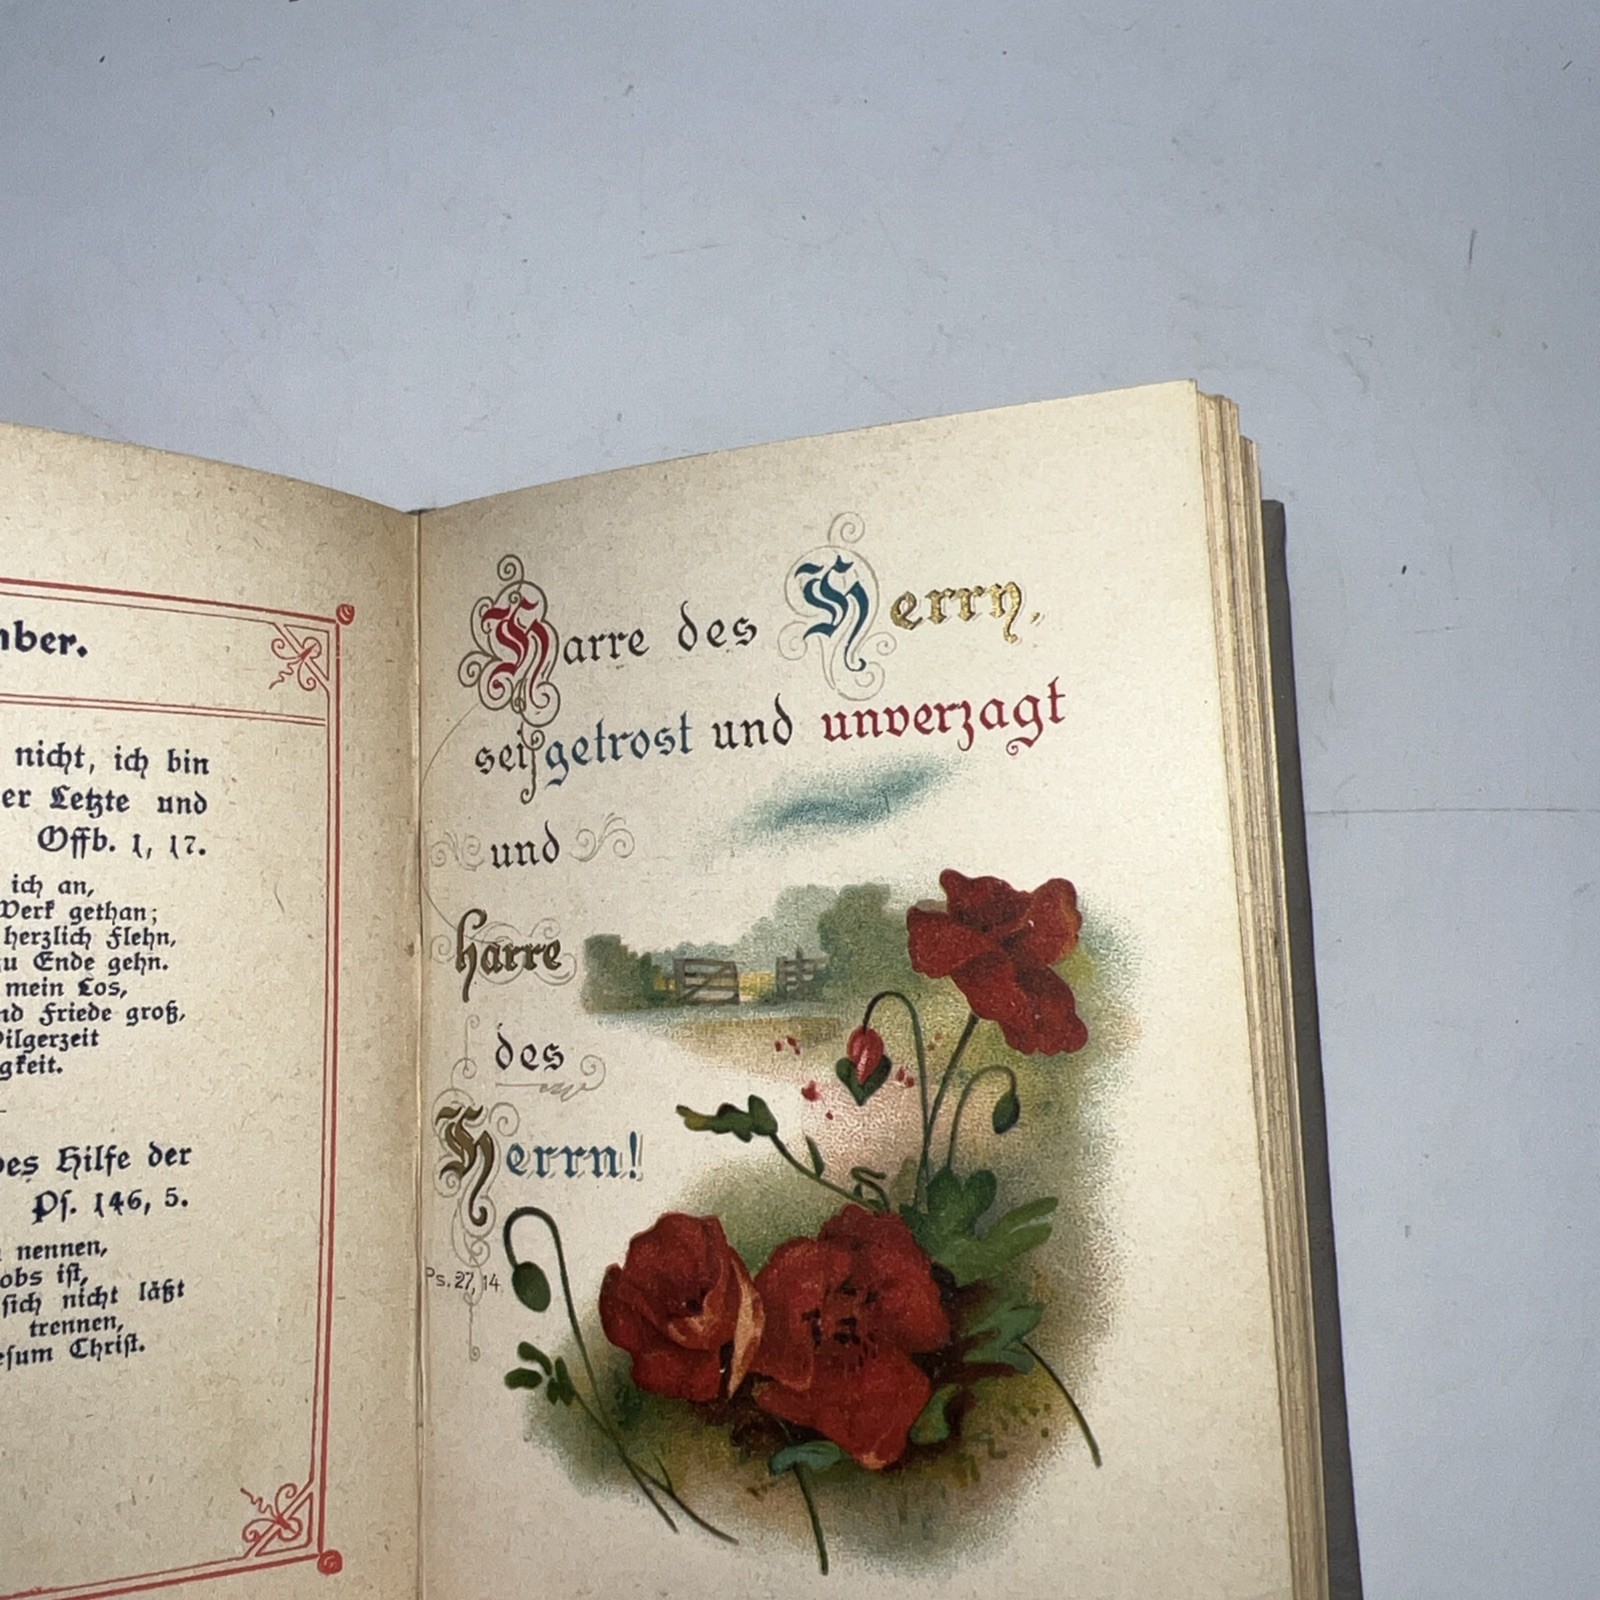 mber.
nicht, ich bin
er Letzte und
Offb. 1, 17.
ich an,
Werk gethan;
herzlich Flehn,
zu Ende gehn.
mein Los,
nd Friede groß,
Pilgerzeit
gkeit.
des Hilfe der
Ps. 146, 5.
nennen,
obs ist,
sich nicht läßt
trennen,
esum Christ.
Harre des Herrn,
sei getrost und unverzagt
und
harre
des
Herrn!
Ps. 27, 14